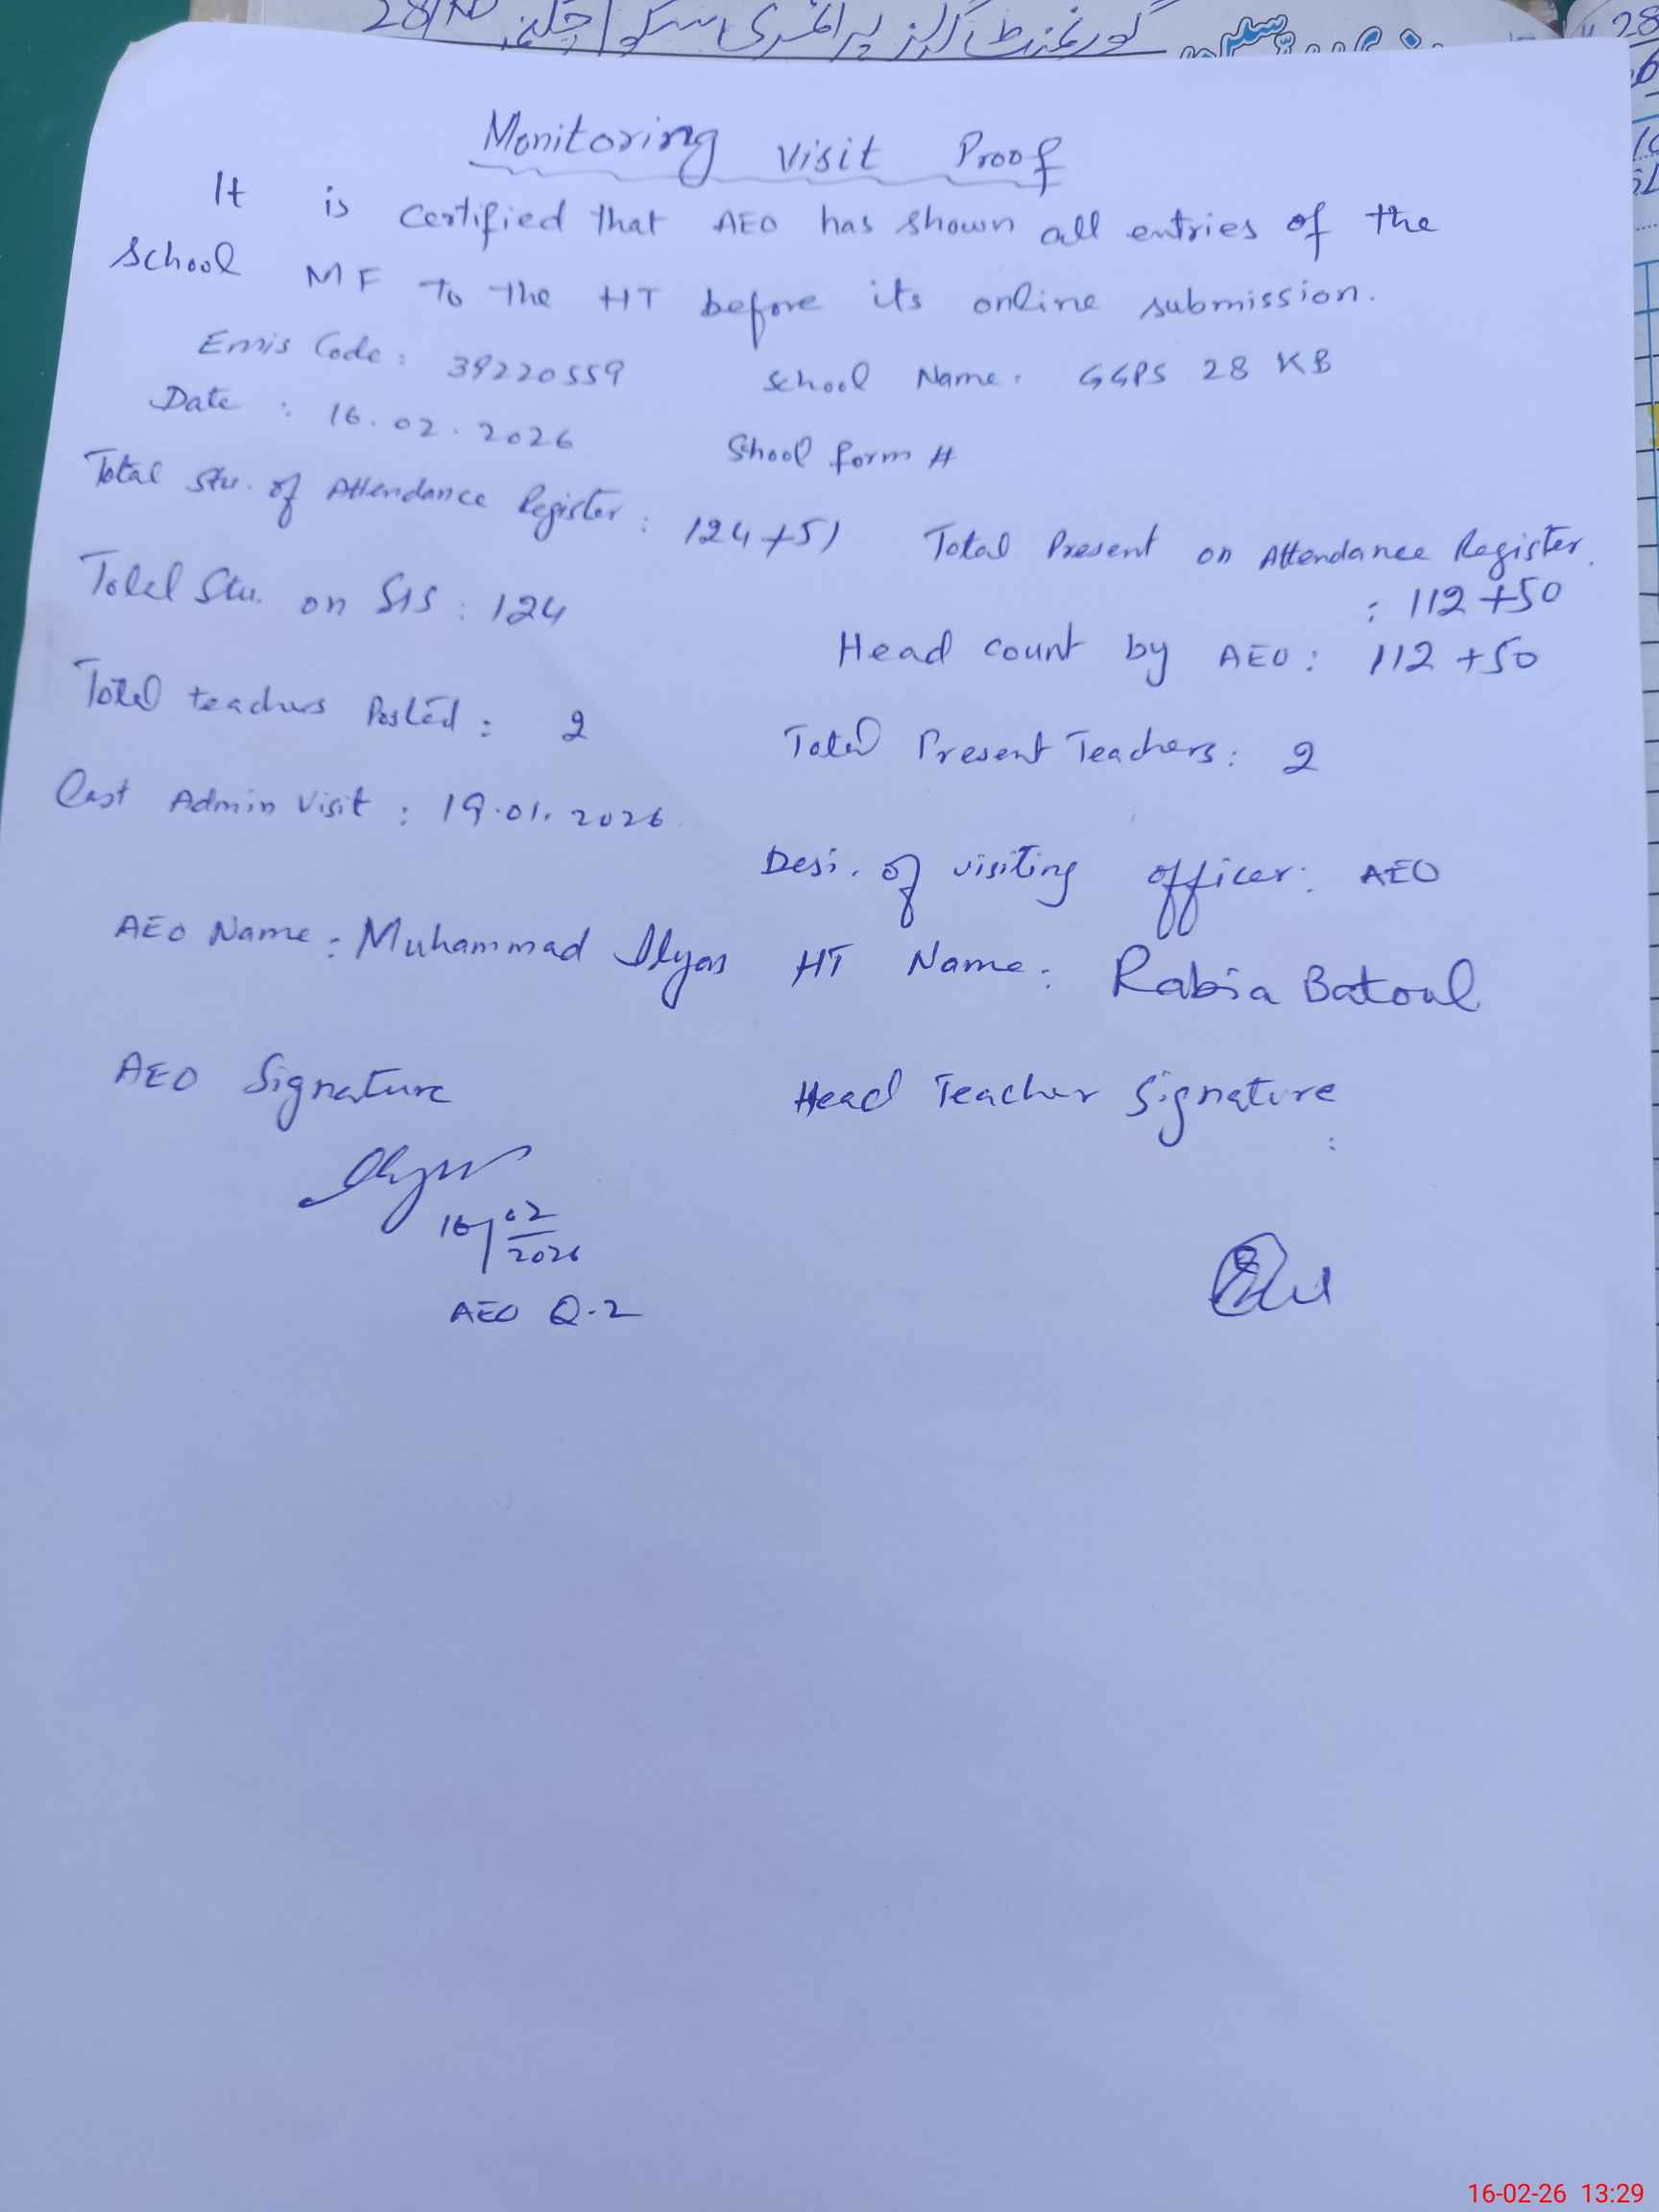 گورنمنٹ گرلز پرائمری سکول چک نمبر 28/KB
28
Monitoring Visit Proof
It is certified that AEO has shown all entries of the
School MF To the HT before its online submission.
Emis Code : 39220559 School Name : GGPS 28 KB
Date : 16.02.2026 Shool form #
Total Stu. of Attendance Register : 124+51 Total Present on Attendance Register.
: 112+50
Total Stu. on SIS : 124 Head count by AEO : 112+50
Total teachers Posted : 2 Total Present Teachers : 2
Last Admin Visit : 19.01.2026
Desi. of visiting officer : AEO
AEO Name : Muhammad Ilyas HT Name : Rabia Batoul
AEO Signature Head Teacher Signature :
16/02/2026
AEO Q-2
16-02-26 13:29